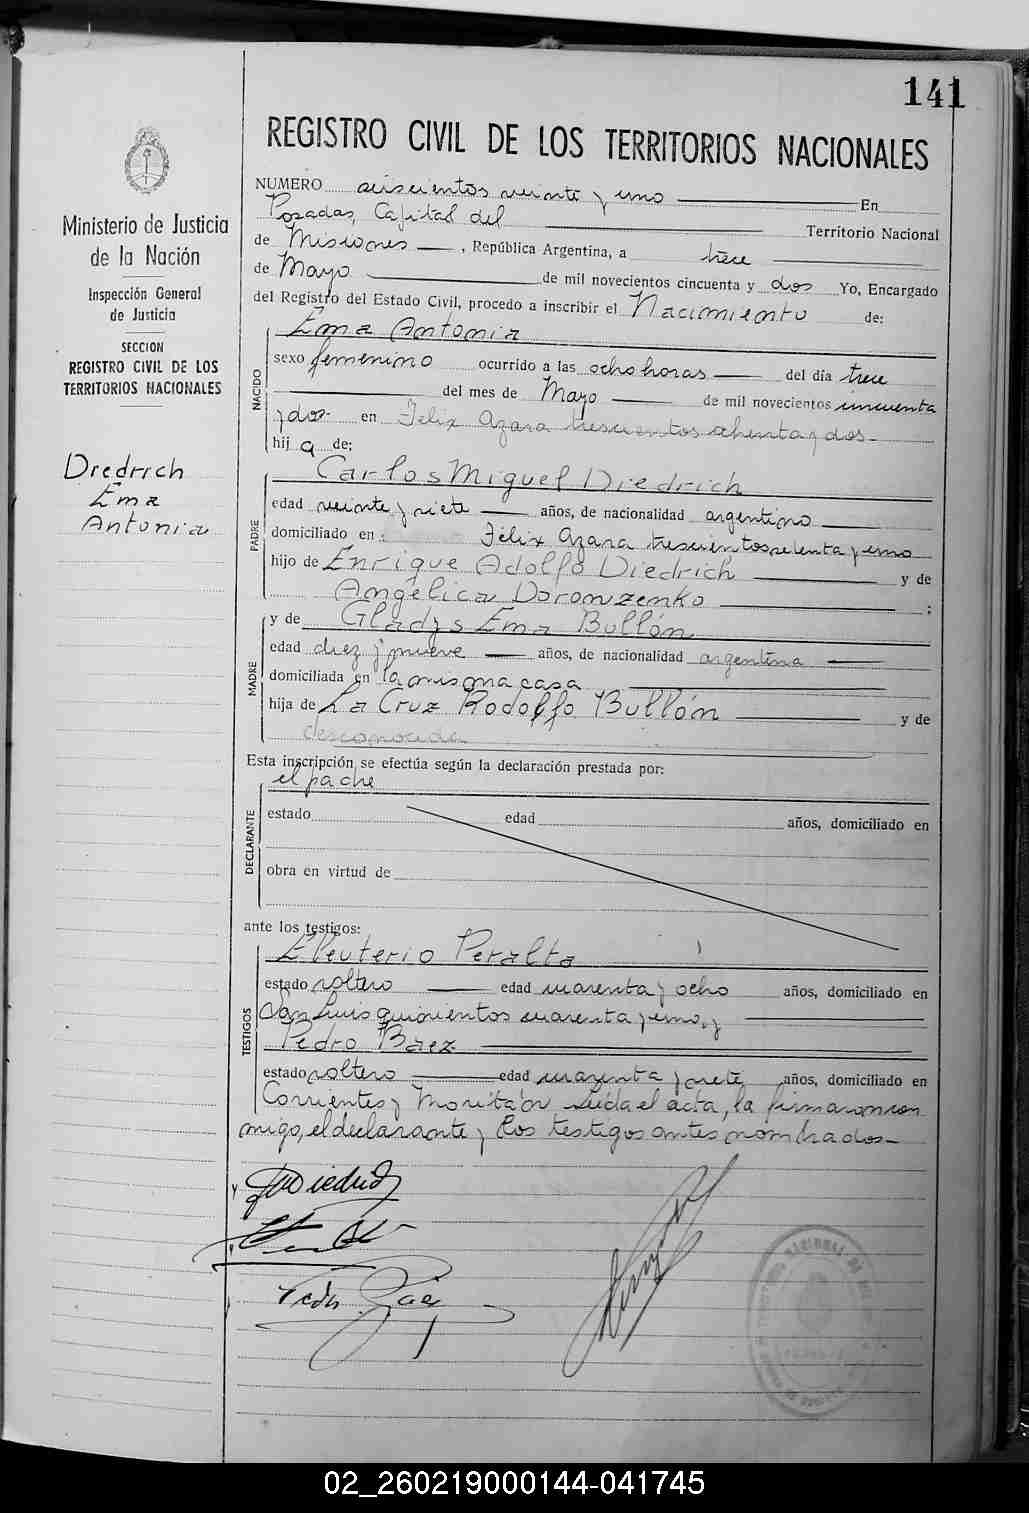 141
REGISTRO CIVIL DE LOS TERRITORIOS NACIONALES
Ministerio de Justicia
de la Nación
Inspección General
de Justicia
SECCION
REGISTRO CIVIL DE LOS
TERRITORIOS NACIONALES
Diedrich
Ema
Antonia
NUMERO seiscientos veinte y uno En
Posadas, Capital del Territorio Nacional
de Misiones, República Argentina, a trece
de Mayo de mil novecientos cincuenta y dos Yo, Encargado
del Registro del Estado Civil, procedo a inscribir el Nacimiento de:
NACIDO
Ema Antonia
sexo femenino ocurrido a las ocho horas del día trece
del mes de Mayo de mil novecientos cincuenta
y dos en Felix Azara trescientos ochenta y dos
hij a de:
PADRE
Carlos Miguel Diedrich
edad veinte y siete años, de nacionalidad argentino
domiciliado en: Félix Azara trescientos setenta y uno
hijo de Enrique Adolfo Diedrich y de
Angélica Doronzenko ;
MADRE
y de Gladys Ema Bullón
edad diez y nueve años, de nacionalidad argentina
domiciliada en la misma casa
hija de La Cruz Rodolfo Bullón y de
desconocida
Esta inscripción se efectúa según la declaración prestada por:
el padre
DECLARANTE
estado edad años, domiciliado en
obra en virtud de
ante los testigos:
TESTIGOS
Eleuterio Peralta
estado soltero edad cuarenta y ocho años, domiciliado en
San Luis quinientos cuarenta y uno, y
Pedro Báez
estado soltero edad cuarenta y siete años, domiciliado en
Corrientes y Moritán. Leída el acta, la firmaron con
migo, el declarante y los testigos antes nombrados
Diedrich
Pedro Báez
02_260219000144-041745